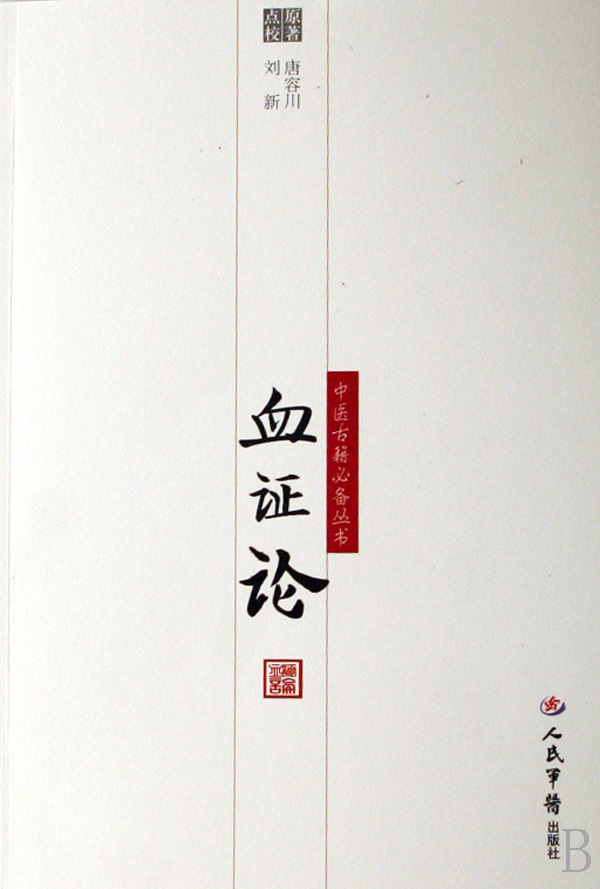 原著
点校
唐容川
刘新
中医古籍必备丛书
血证论
人民军醫
出版社
B